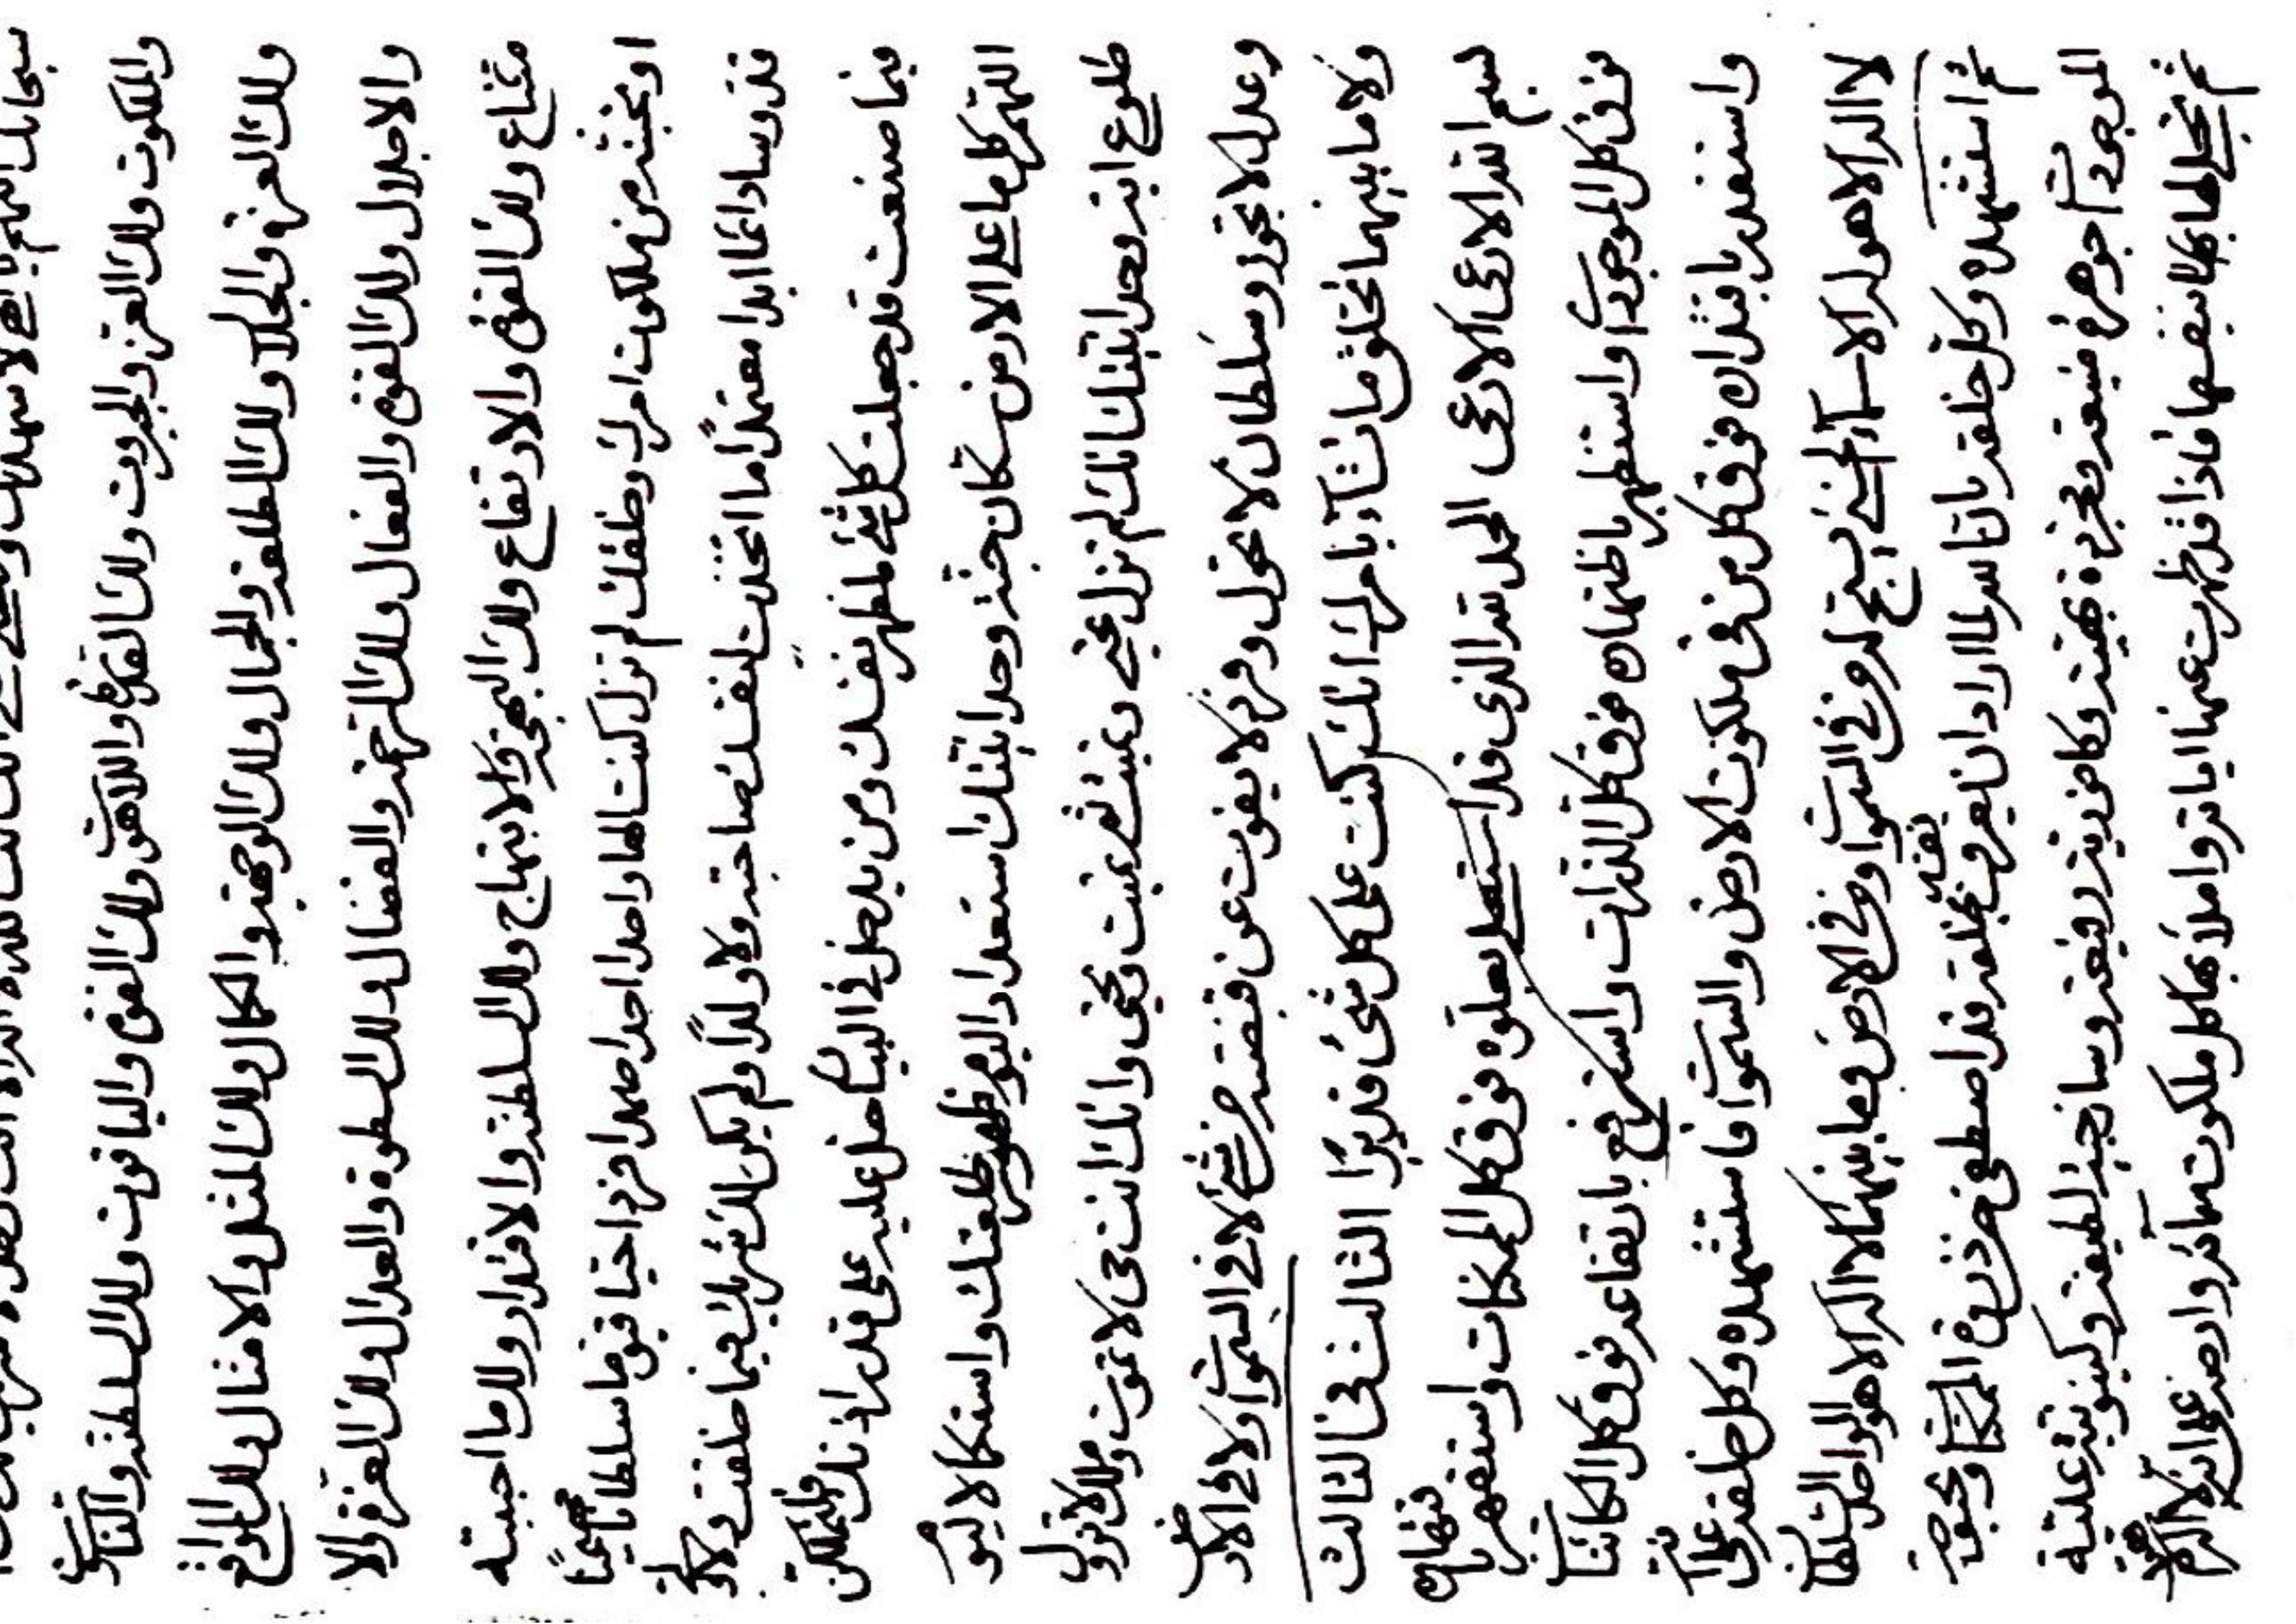 سبحانك اللهم يا الهي لاشهدنك
والملكوت ولك العز والجبروت ولك القدرة واللاهوت ولك القوة والياقوت ولك السلطنة والناسوت
ولك العزة والجلال ولك الطلعة والجمال ولك الوجهة والكمال ولك المثل والامثال ولك المواقع
والاجلال ولك القوة والفعال ولك الرحمة والفضال ولك السطوة والعدال ولك العزة والا
متناع ولك القوة والارتفاع ولك البهجة والابتهاج ولك السلطنة والاقتدار ولك ما احببته
او تحببنه من ملكوت امرك وخلقك لم تزل كنت الها واحدا احدا صمدا فردا حيا قيوما سلطانا مهيمنا
قدوسا دائما ابدا معتمدا ما اتخذت لنفسك صاحبة ولا ولدا ولم يكن لك شريك فيما خلقت ولا ولي
فيما صنعت قد جعلت كل شئ لمظهر نفسك ومن يدخل في البيان عليه على قدر اذنك فلتملكن
اللهم كلما على الارض سكان جنة وحدانيتك استعدادا ليوم ظهور طلعتك واستكمالا ليوم
طلوع انية وحدانيتك انك لم تزل تحيي وتميت ثم تميت وتحيي وانك انت حي لا تموت وملك لا تزول
وعدل لا تجور وسلطان لا تحول وفرد لا يفوت عن قبضته من شئ لا في السموات ولا في الارض
ولا ما بينهما تخلق ما تشآء بامرك انك كنت على كل شئ قديرا الثالث في الثالث
بسم الله الادعى الادعى الحمد لله الذي قد استعلى بعلوه فوق كل الممكنات واستقهر باقتهاره
فوق كل الموجودات واستظهر باظتهاره فوق كل الذرات واسترفع بارتفاعه فوق كل الكائنات
واستقدر باقتداره فوق كل من في ملكوت الارض والسموات فاستشهده وكل خلقه على انه
لا اله الا هو له الاسمآء الحسنى يسبح له من في السموات ومن في الارض وما بينهما لا اله الا هو الواحد السلطان
ثم استشهده وكل خلقه بان الله لما اراد ان يعرف نفسه بخلقه قد اصطفى من ذروة الممكنات وبحبوحة
الموجودات جوهرة منيعة ومجردة بهية وكافورية رفيعة وساذجية لطيفة وكينونية علية
ثم تجلى لها بها بنفسها فاذا قد ظهرت عنها اياته واملأ بها كل ملكوت سمآئه وارضه على انه لا اله الا هو